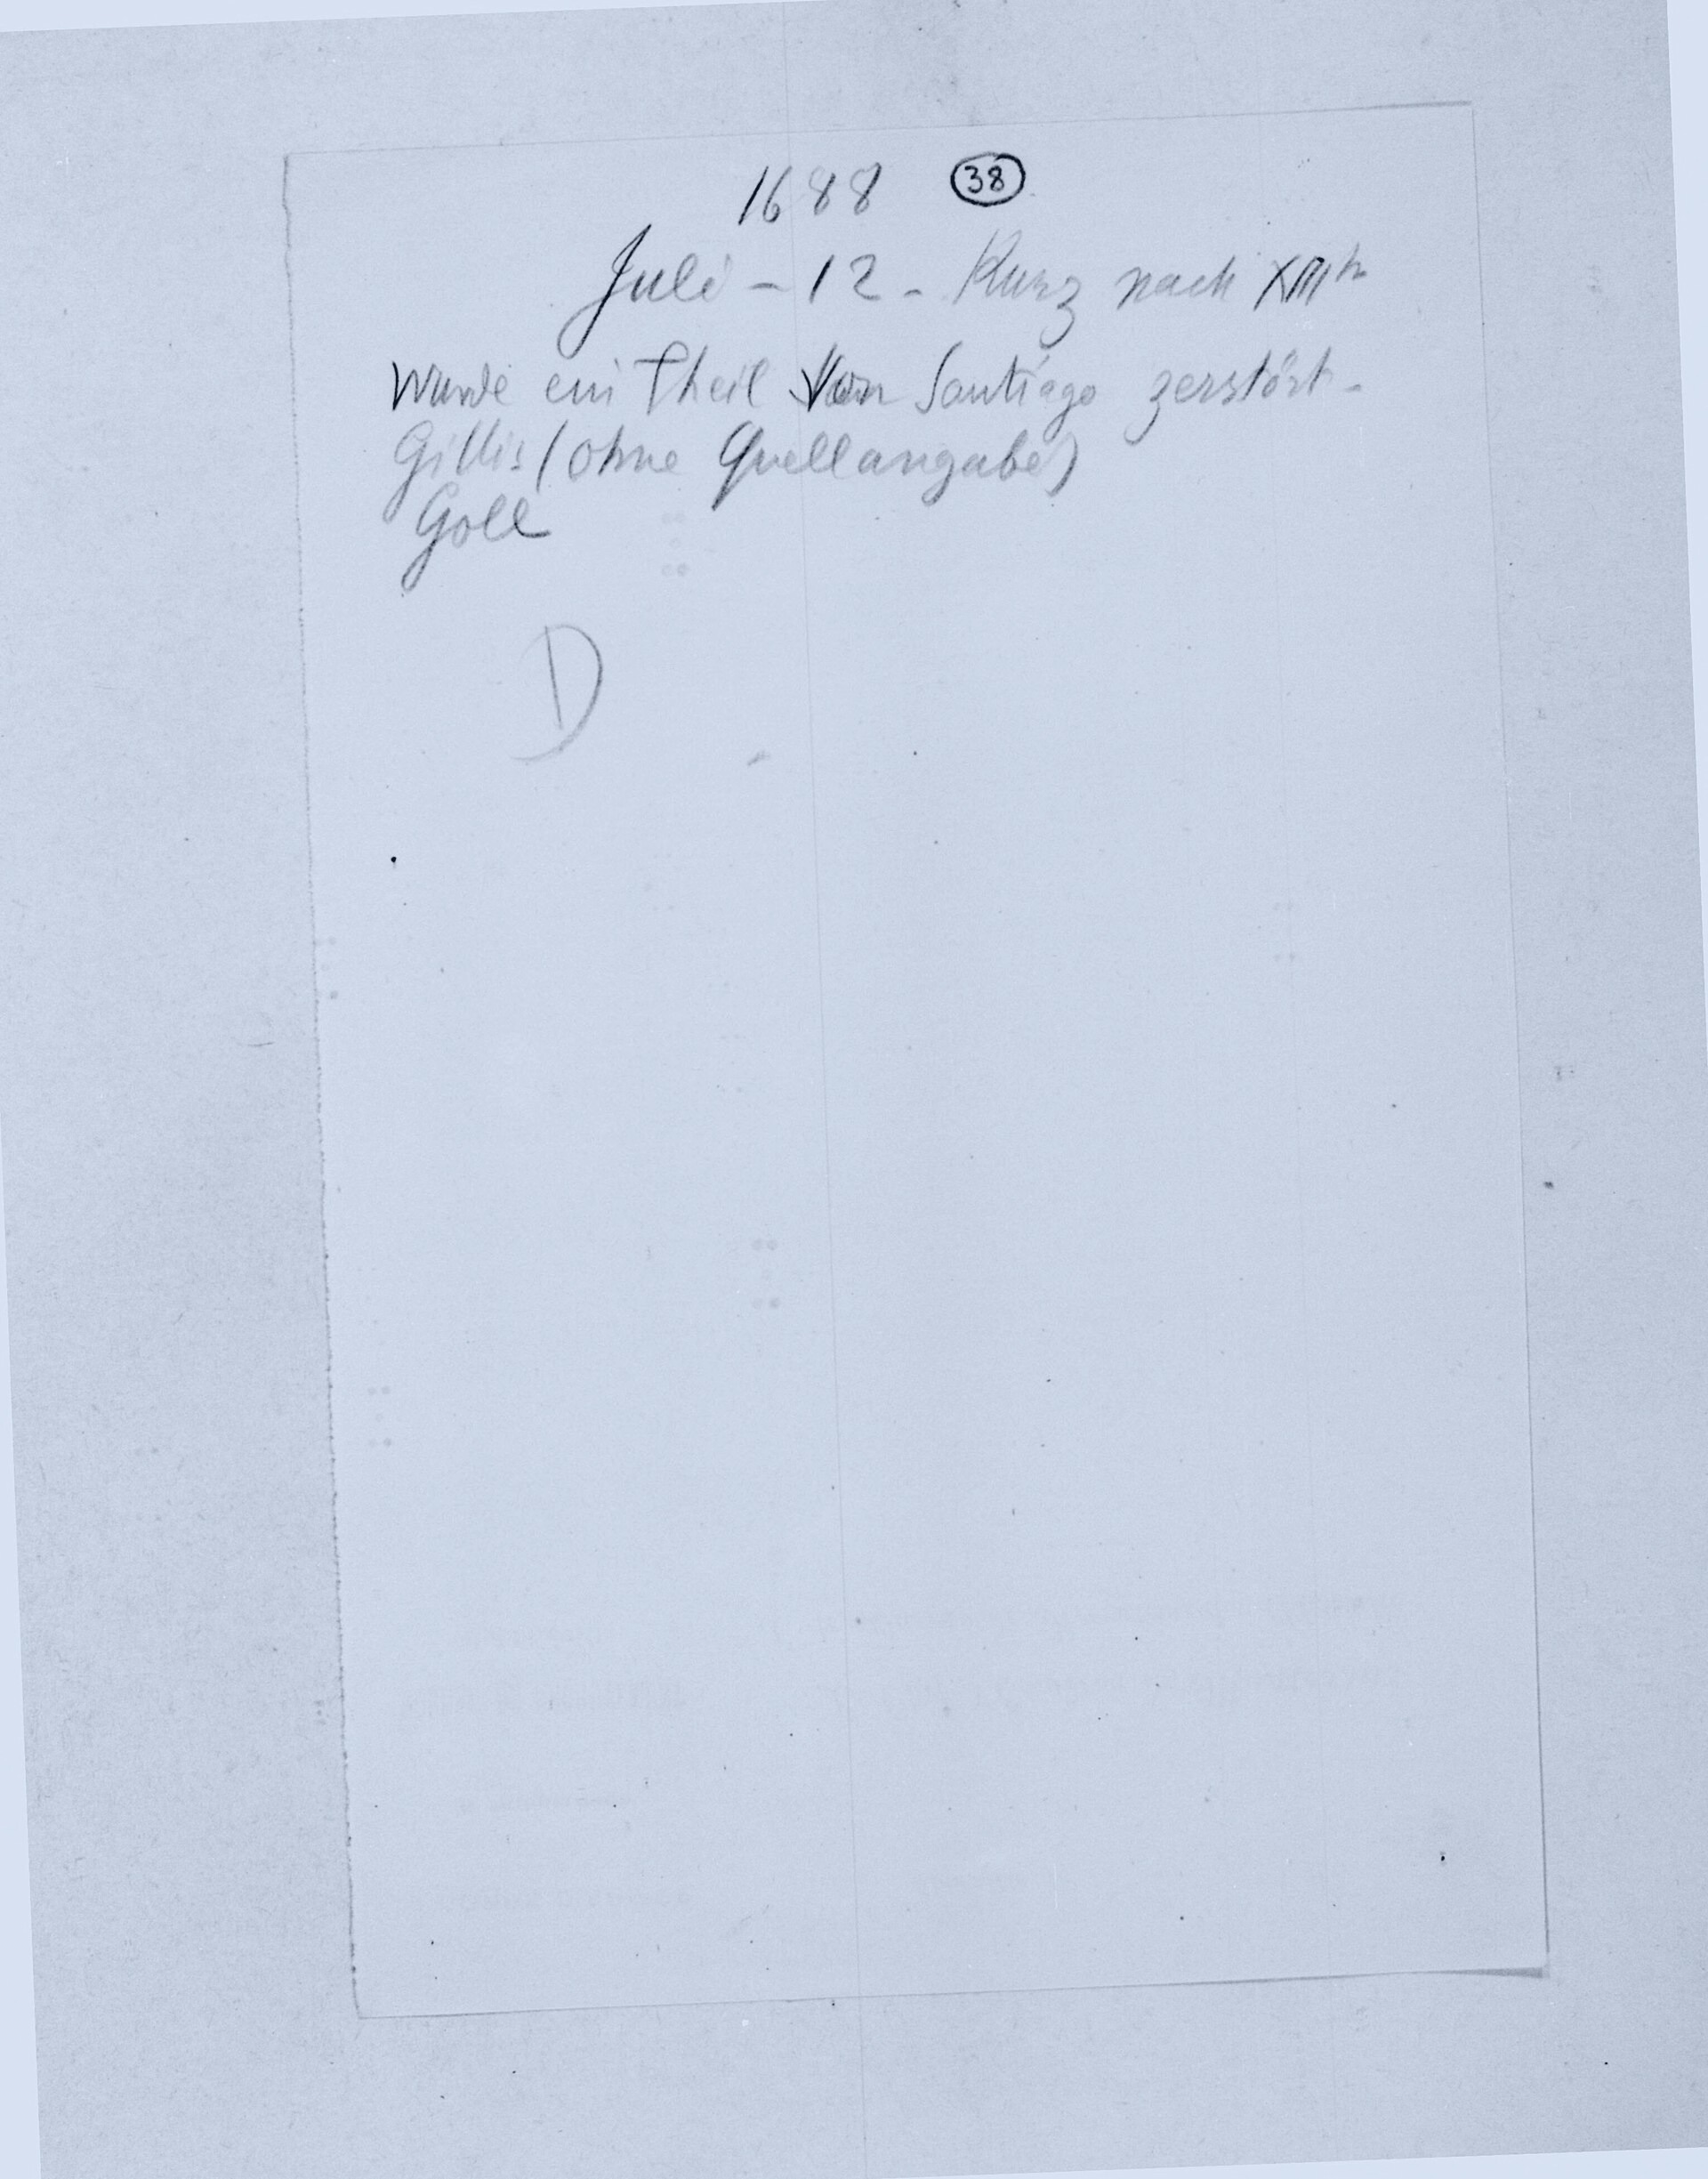 1688 38
Juli - 12 - Kurz nach XIIh
wurde ein Theil von Santiago zerstört.
Gillis (ohne Quellangabe)
Goll
D